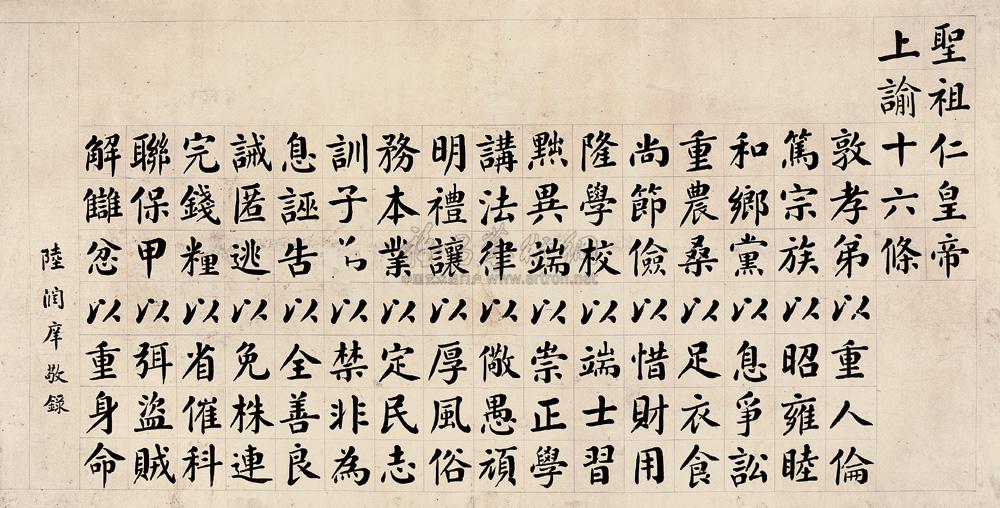 聖祖仁皇帝
上諭十六條
敦孝弟以重人倫
篤宗族以昭雍睦
和鄉黨以息爭訟
重農桑以足衣食
尚節儉以惜財用
隆學校以端士習
黜異端以崇正學
講法律以儆愚頑
明禮讓以厚風俗
務本業以定民志
訓子以禁非為
息誣告以全善良
誡匿逃以免株連
完錢糧以省催科
聯保甲以弭盜賊
解讎忿以重身命
陸潤庠敬録
www.artron.net